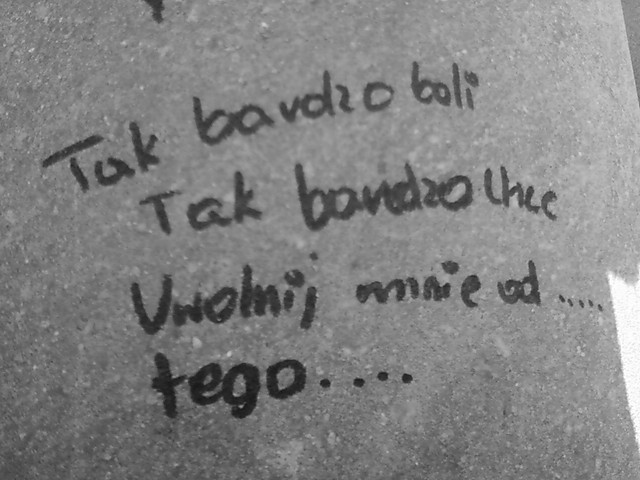 Tak bardzo boli
Tak bardzo chce
Uwolnij mnie od .....
tego....